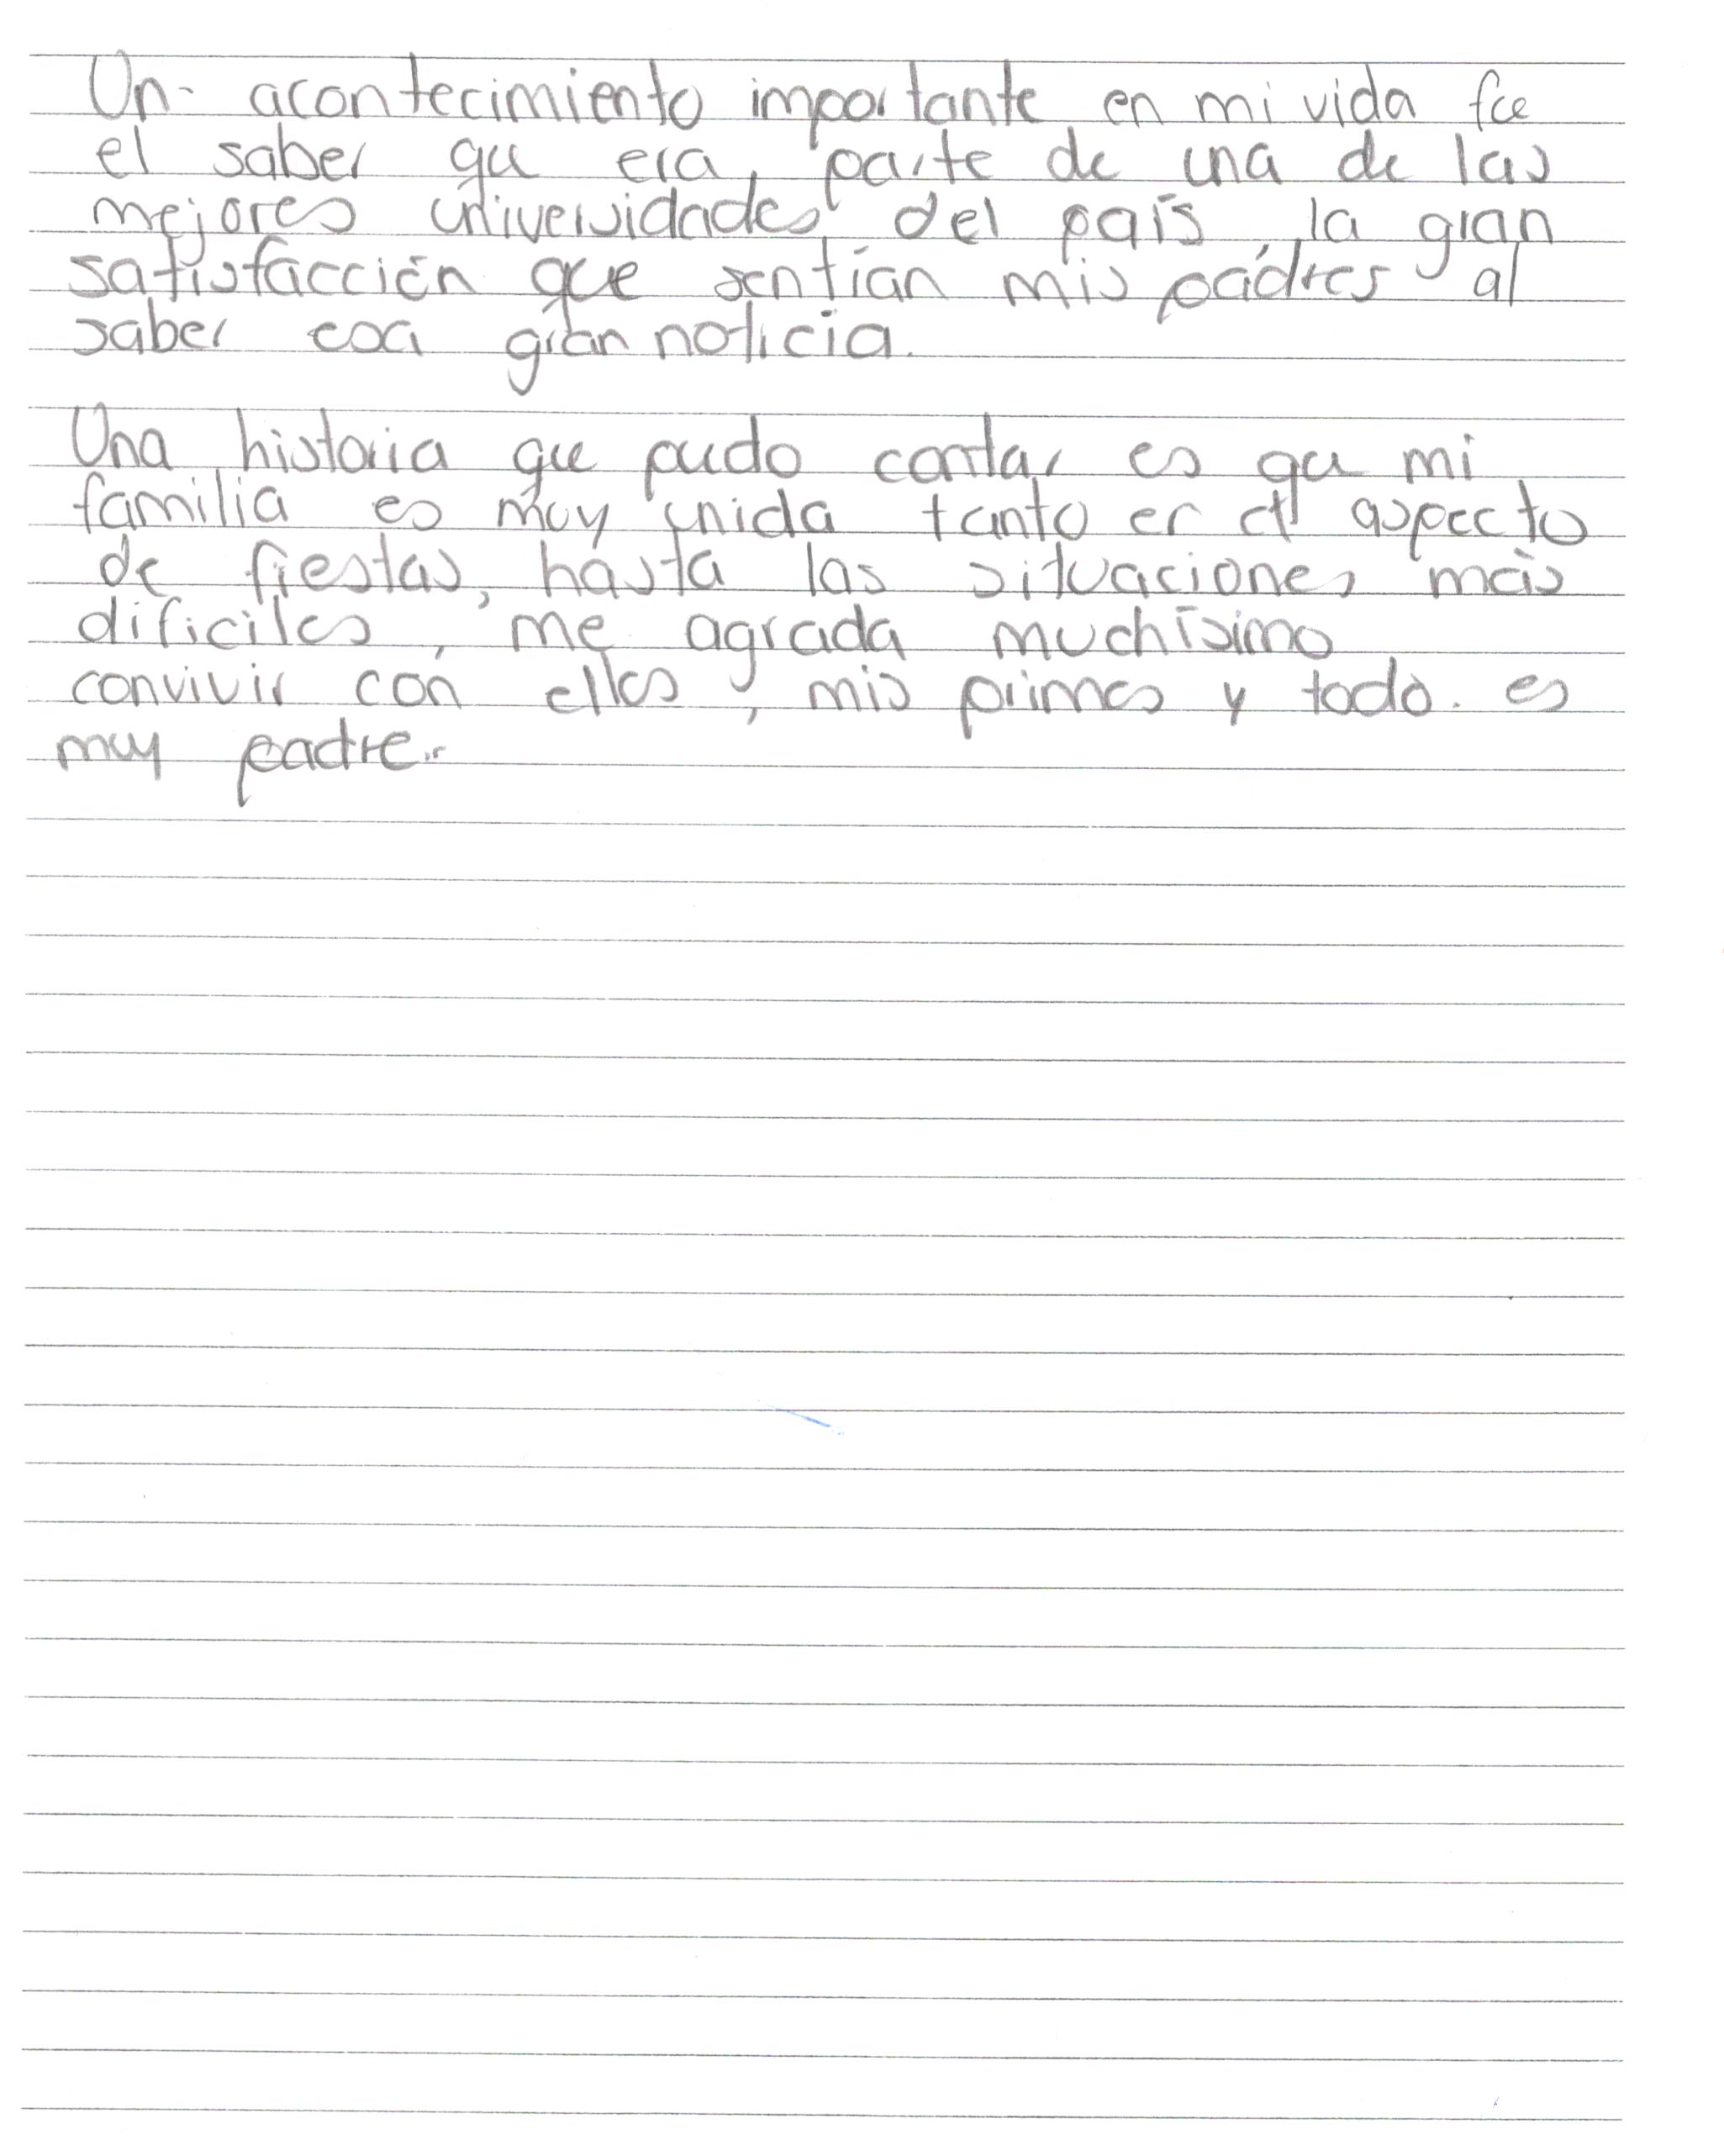 Un acontecimiento importante en mi vida fue
el saber que era parte de una de las
mejores universidades del país, la gran
satisfacción que sentían mis padres al
saber esa gran noticia.
Una historia que pudo contar es que mi
familia es muy unida tanto en el aspecto
de fiestas, hasta las situaciones más
dificiles, me agrada muchísimo
convivir con ellos, mis primos y todo. es
muy padre.